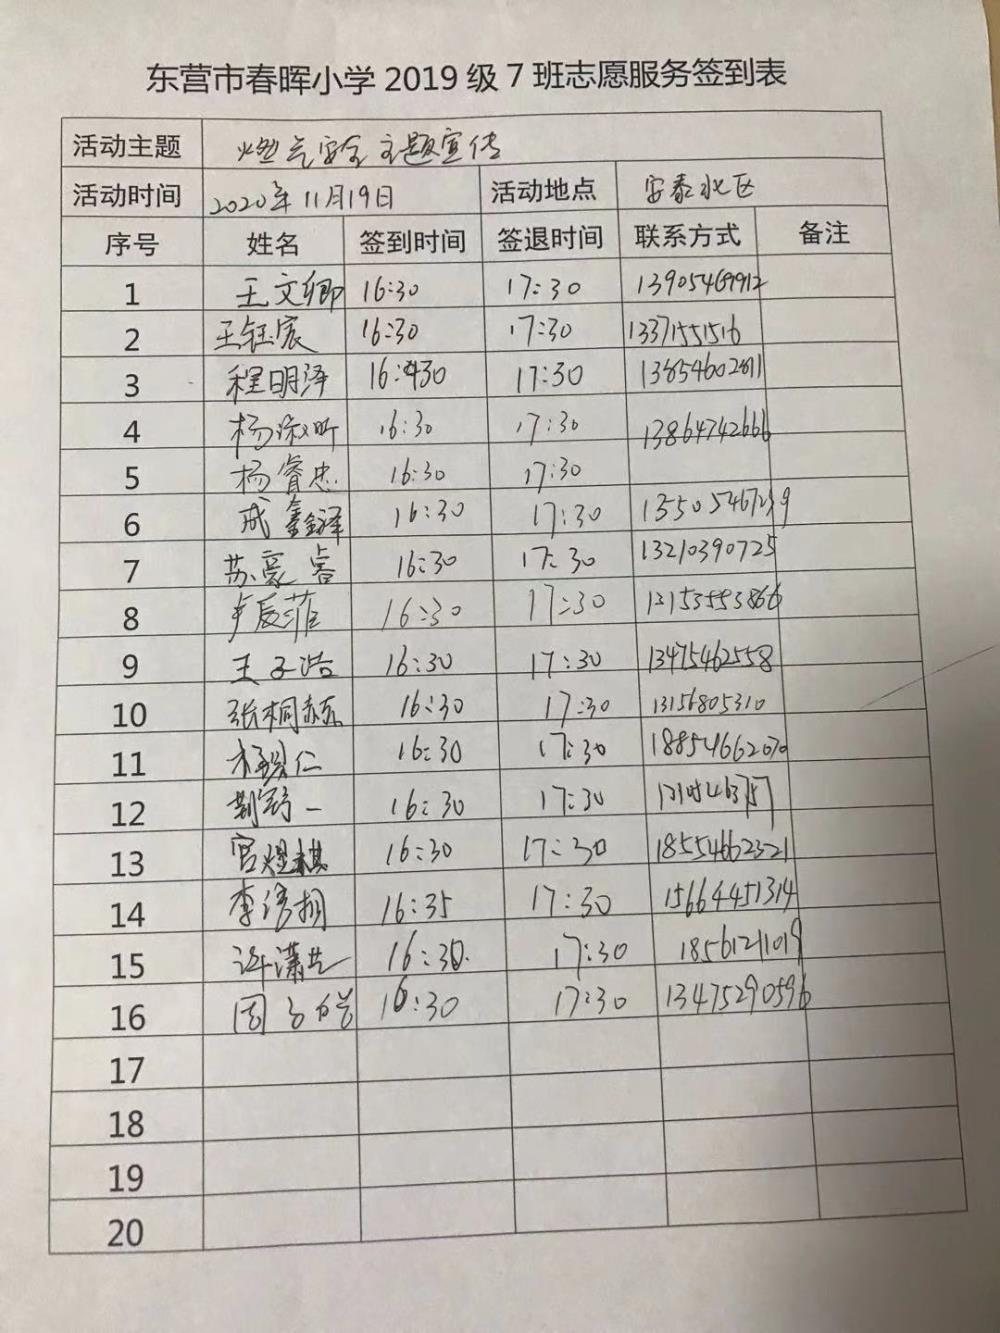 东营市春晖小学2019级7班志愿服务签到表
活动主题 燃气安全主题宣传
活动时间 2020年11月19日 活动地点 安泰北区
序号 姓名 签到时间 签退时间 联系方式 备注
1 王文卿 16:30 17:30 13905469912
2 王钰宸 16:30 17:30 13371551516
3 程明泽 16:30 17:30 13854602811
4 杨淑昕 16:30 17:30 13864742666
5 杨睿忠 16:30 17:30
6 成鑫泽 16:30 17:30 13505467239
7 苏豪睿 16:30 17:30 13210390725
8 卢辰菲 16:30 17:30
9 王子浩 16:30 17:30 13475462558
10 张桐赫 16:30 17:30 13156805310
11 16:30 17:30 18854662070
12 荆舒一 16:30 17:30
13 宫煜棋 16:30 17:30 18554662321
14 16:35 17:30 15664451314
15 许潇艺 16:30 17:30 18561211019
16 周子皓 16:30 17:30 13475290596
17
18
19
20